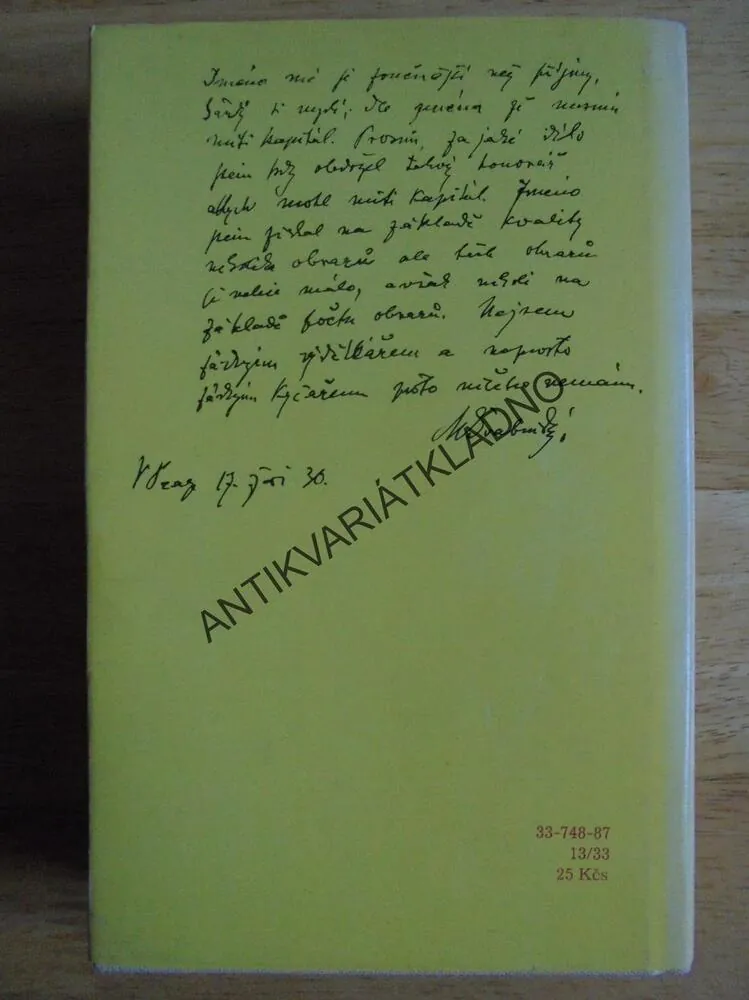 Jméno mé je zvučnější než příjmy,
každý si myslí, dle jména že musím
míti kapitál. Prosím, za jaké dílo
jsem kdy obdržel takový honorář
abych mohl míti kapitál. Jméno
jsem získal na základě kvality
několika obrazů ale těch obrazů
je velice málo, avšak nikoli na
základě počtu obrazů. Nejsem
žádným výdělkářem a naprosto
žádným kýčařem proto ničeho nemám.
V Praze 17. září 30.
ANTIKVARIÁTKLADNO
33-748-87
13/33
25 Kčs